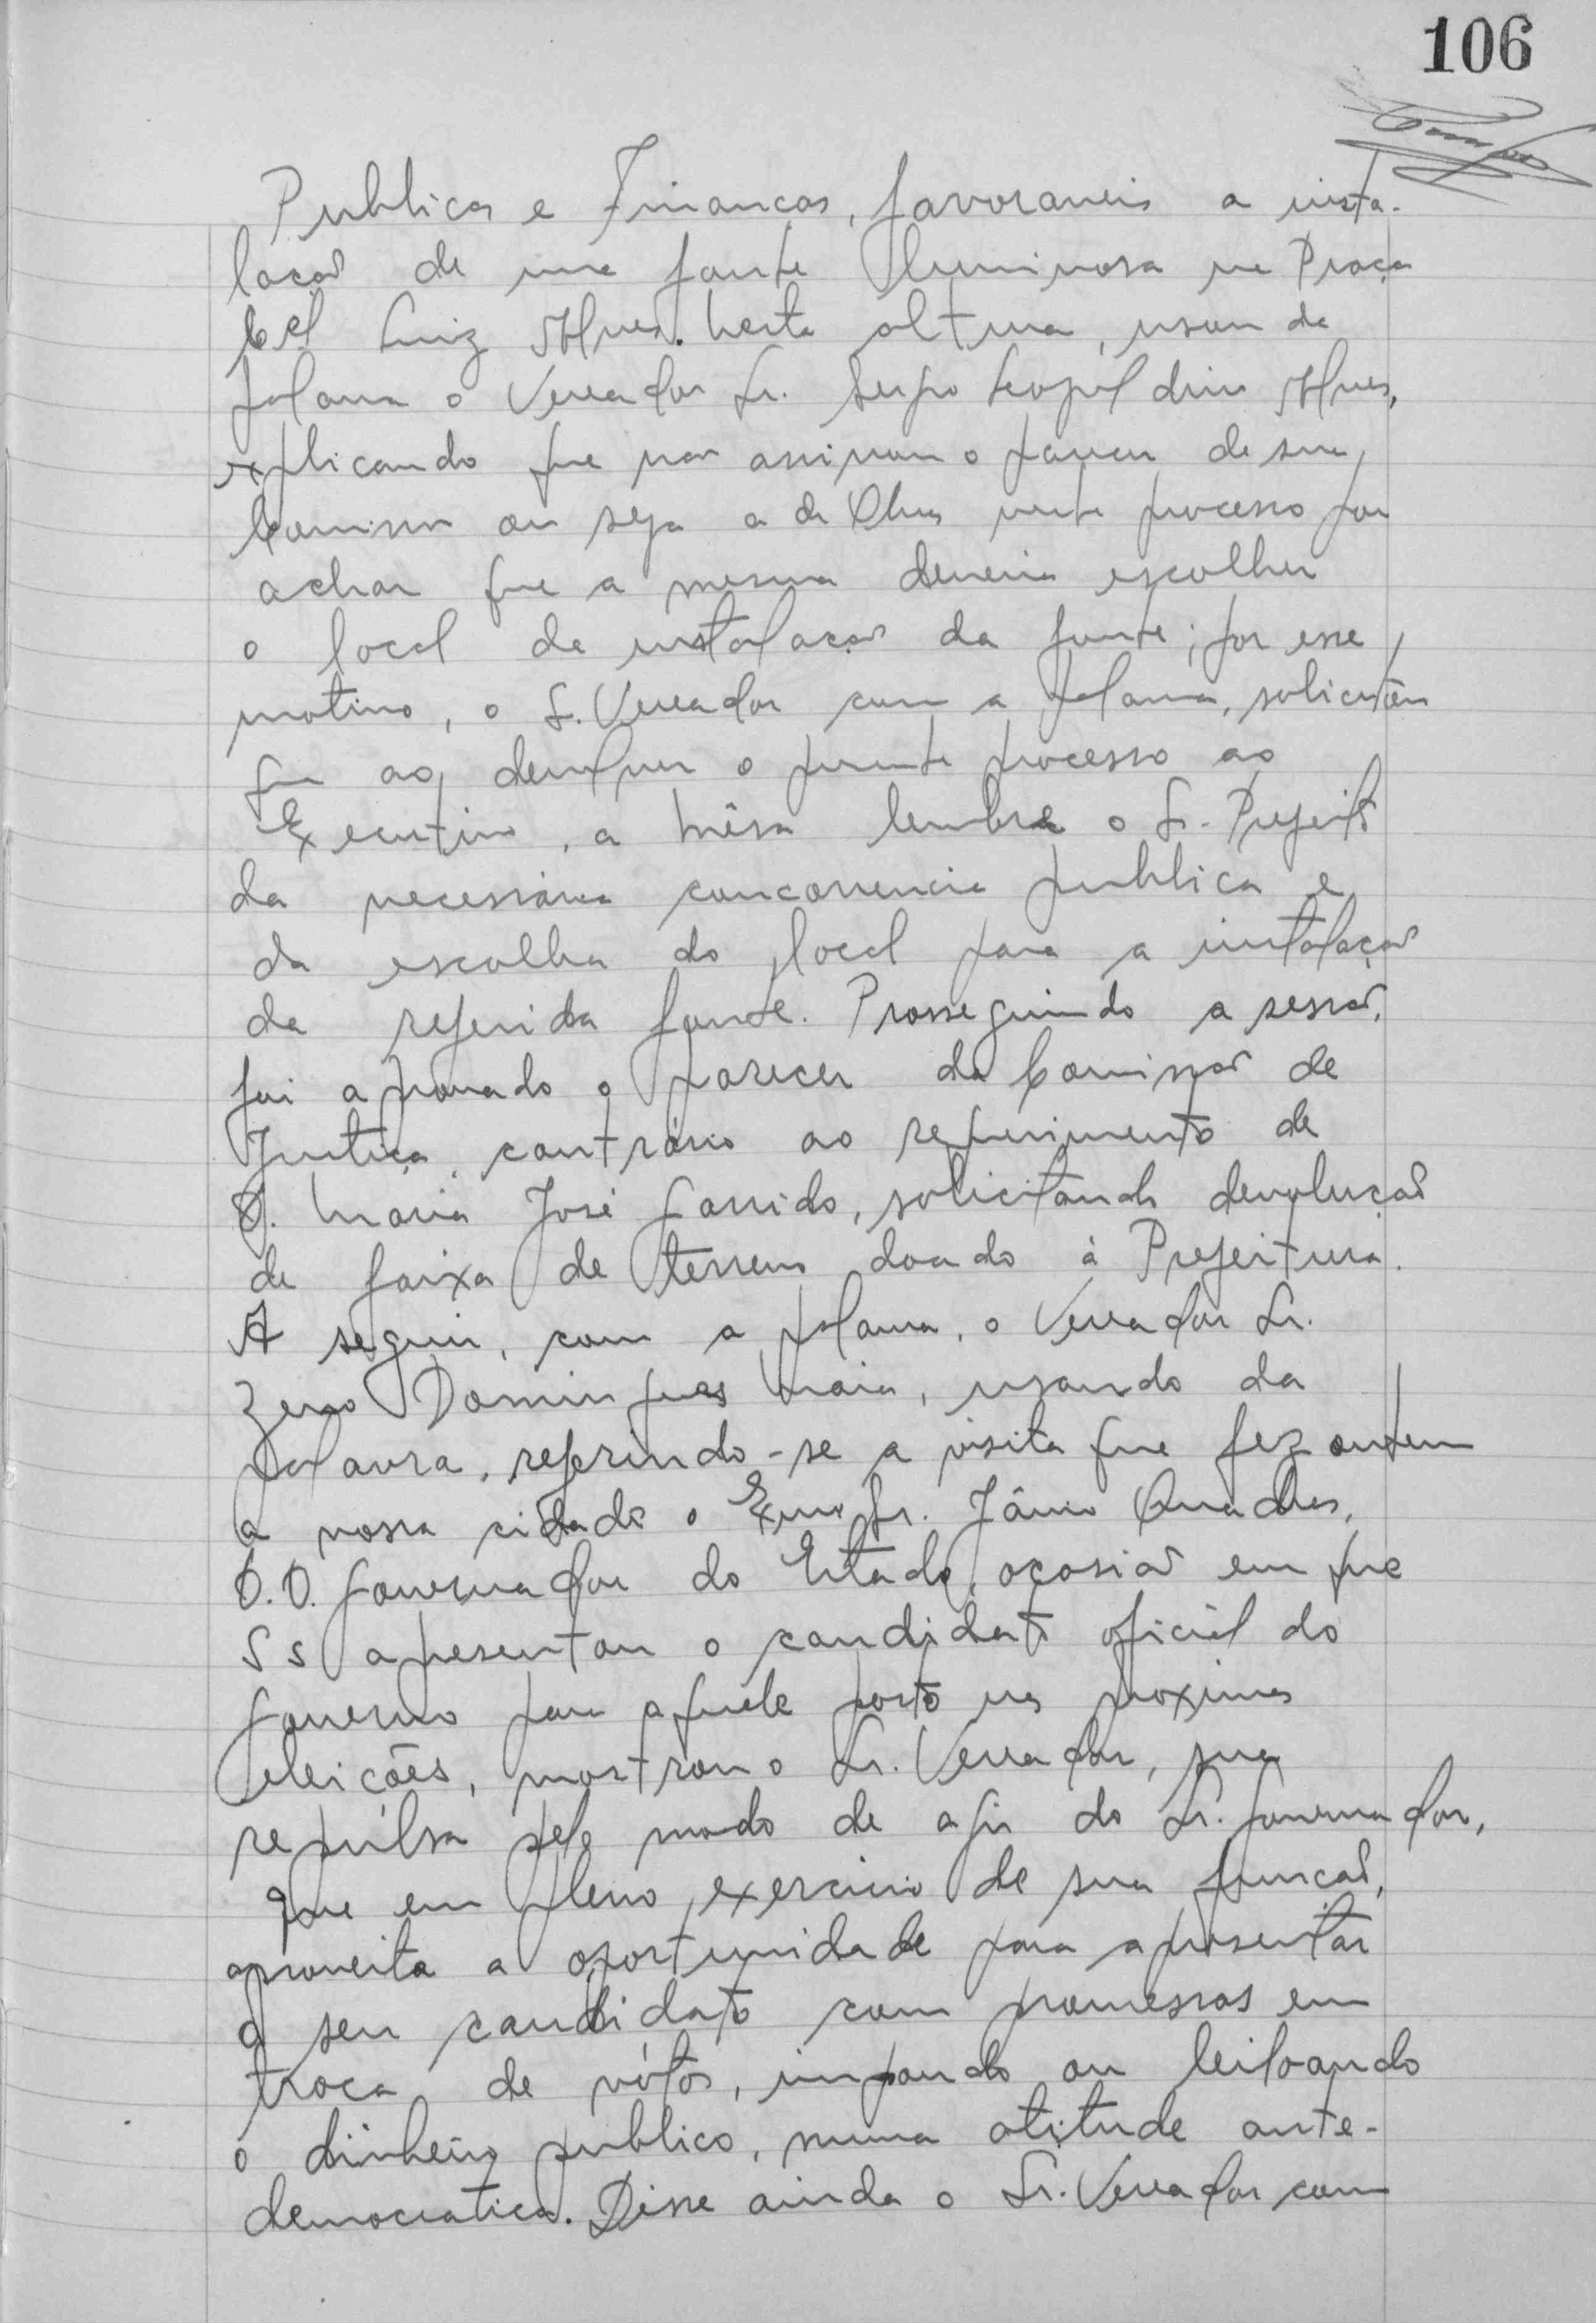 106
Publicas e Financas, favoraveis a insta-
lacao de uma fonte luminosa na Praça
Cel Luiz Alves. Nesta altura, usou da
palavra o Vereador Sr. Sergio Leopoldino Alves,
explicando que nao assinou o parecer de sua
Comissao ou seja a de Obras neste processo por
achar que a mesma deveria escolher
o local da instalaçao da fonte; por esse
motivo, o Sr. Vereador com a palavra, solicitou
que ao devolver o presente processo ao
Executivo, a Mêsa lembre o Sr. Prefeito
da necessária concorrencia publica e
da escolha do local para a instalaçao
da referida fonte. Prosseguindo a sessao,
foi aprovado o parecer da Comissao de
Justiça, contrário ao requerimento de
D. Maria José Garrido, solicitando devoluçao
de faixa de terreno doado à Prefeitura.
A seguir, com a palavra, o Vereador Sr.
Zeno Domingues Maia, usando da
palavra, referindo-se a visita que fez ontem
a nossa cidade o Exmo Sr. Jânio Quadros,
D.D. Governador do Estado, ocasiao em que
S s apresentou o candidato oficial do
governo para aquele posto nas proximas
eleições, mostrou o Sr. Vereador, sua
repúlsa pelo modo de agir do Sr. Governador,
que em pleno exercicio de sua funcao,
aproveita a oportunidade para apresentar
o seu candidato com promessas em
troca de vótos, impondo ou leiloando
o dinheiro publico, numa atitude ante-
democratica. Disse ainda o Sr. Vereador com